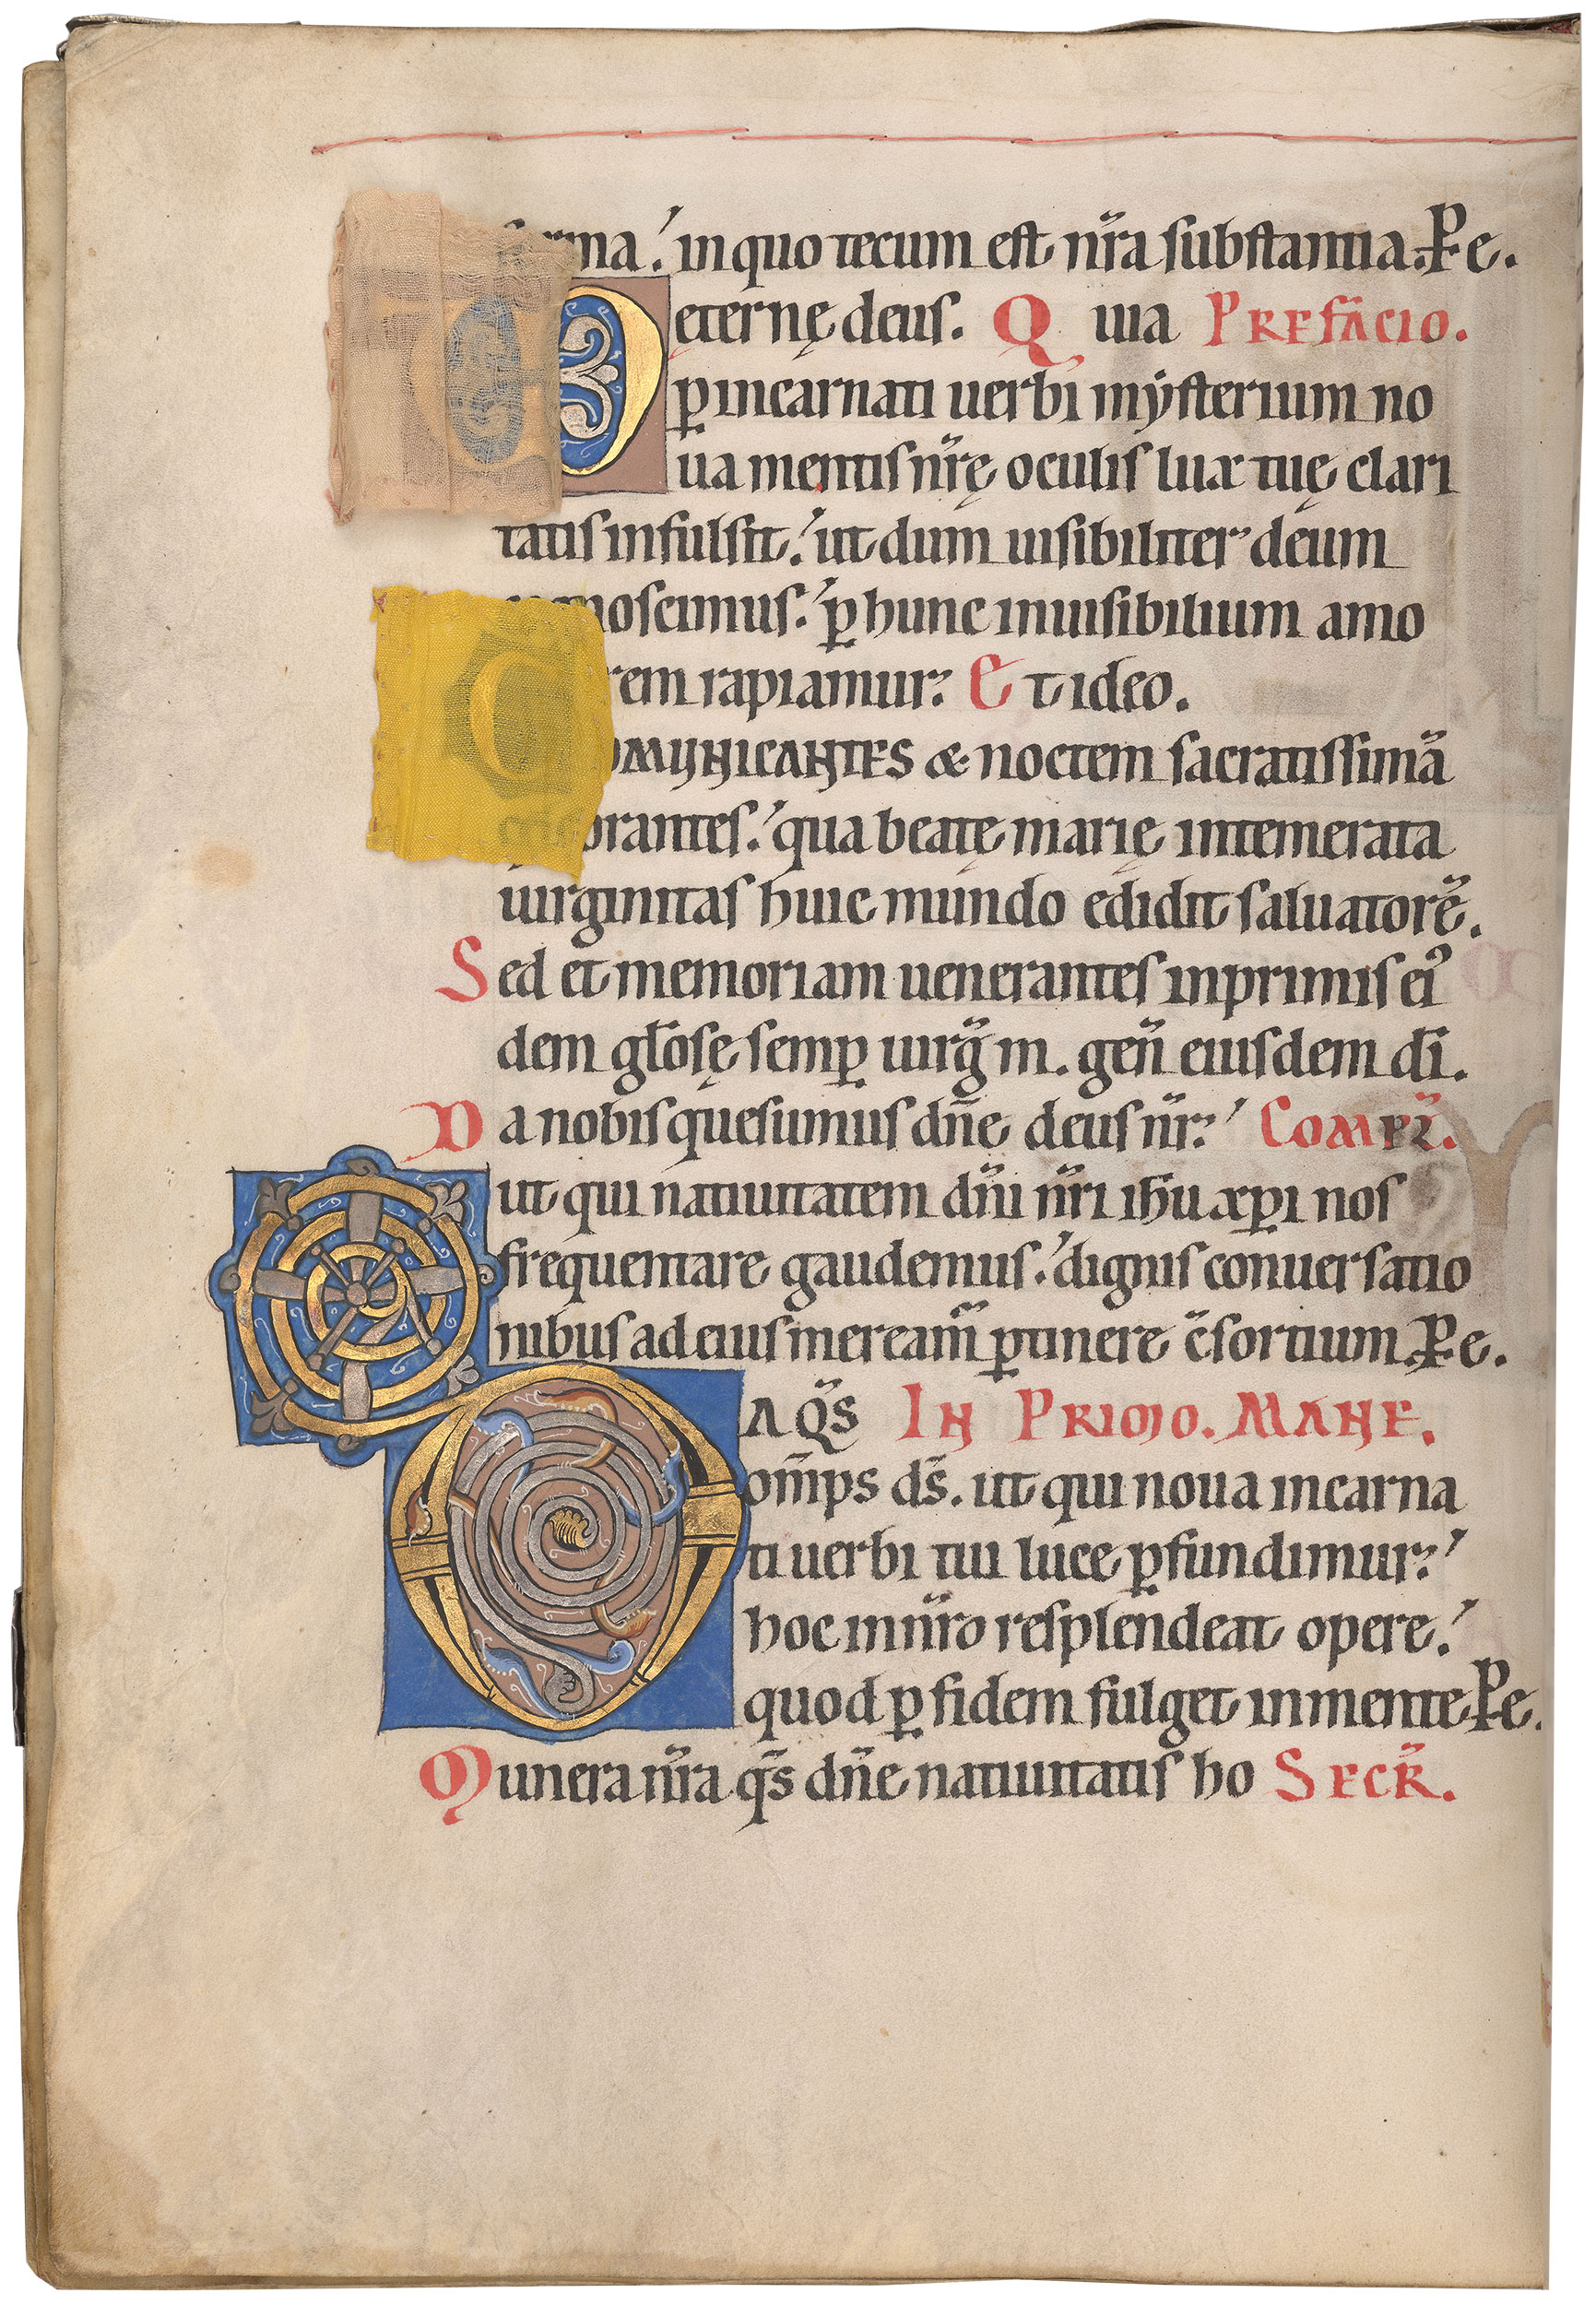 forma. in quo tecum est nr̄a substantia. Pe.
ęternę deus. Q uia Prefacio.
ꝑ incarnati uerbi mẏsterium no
ua mentis nr̄ę oculis lux tuę clari
tatis infulsit. ut dum uisibiliter deum
cognoscimus. ꝑ hunc inuisibilium amo
rem rapiamur. Et ideo.
COMUNICANTES & noctem sacratissimā
celebrantes. qua beatę marię intemerata
uirginitas huic mundo edidit saluatorē.
Sed et memoriam uenerantes inprimis eiꝰ
dem gl̄osę semꝑ uirḡ m. gen̄ eiusdem dī.
Da nobis quesumus dn̄e deus nr̄. COMPL̄.
ut qui natiuitatem dn̄i nr̄i ih̄u xp̄i nos
frequentare gaudemus. dignis conuersatio
nibus ad eius meream̄ ꝑtinere c̄sortium. Pe.
DA q̄s IN PRIMO. MANE.
om̄ps ds̄. ut qui noua incarna
ti uerbi tui luce ꝑfundimur.
hoc in nr̄o resplendeat opere.
quod ꝑ fidem fulget in mente Pe.
Munera nr̄a q̄s dn̄e natiuitatis ho SECR̄.